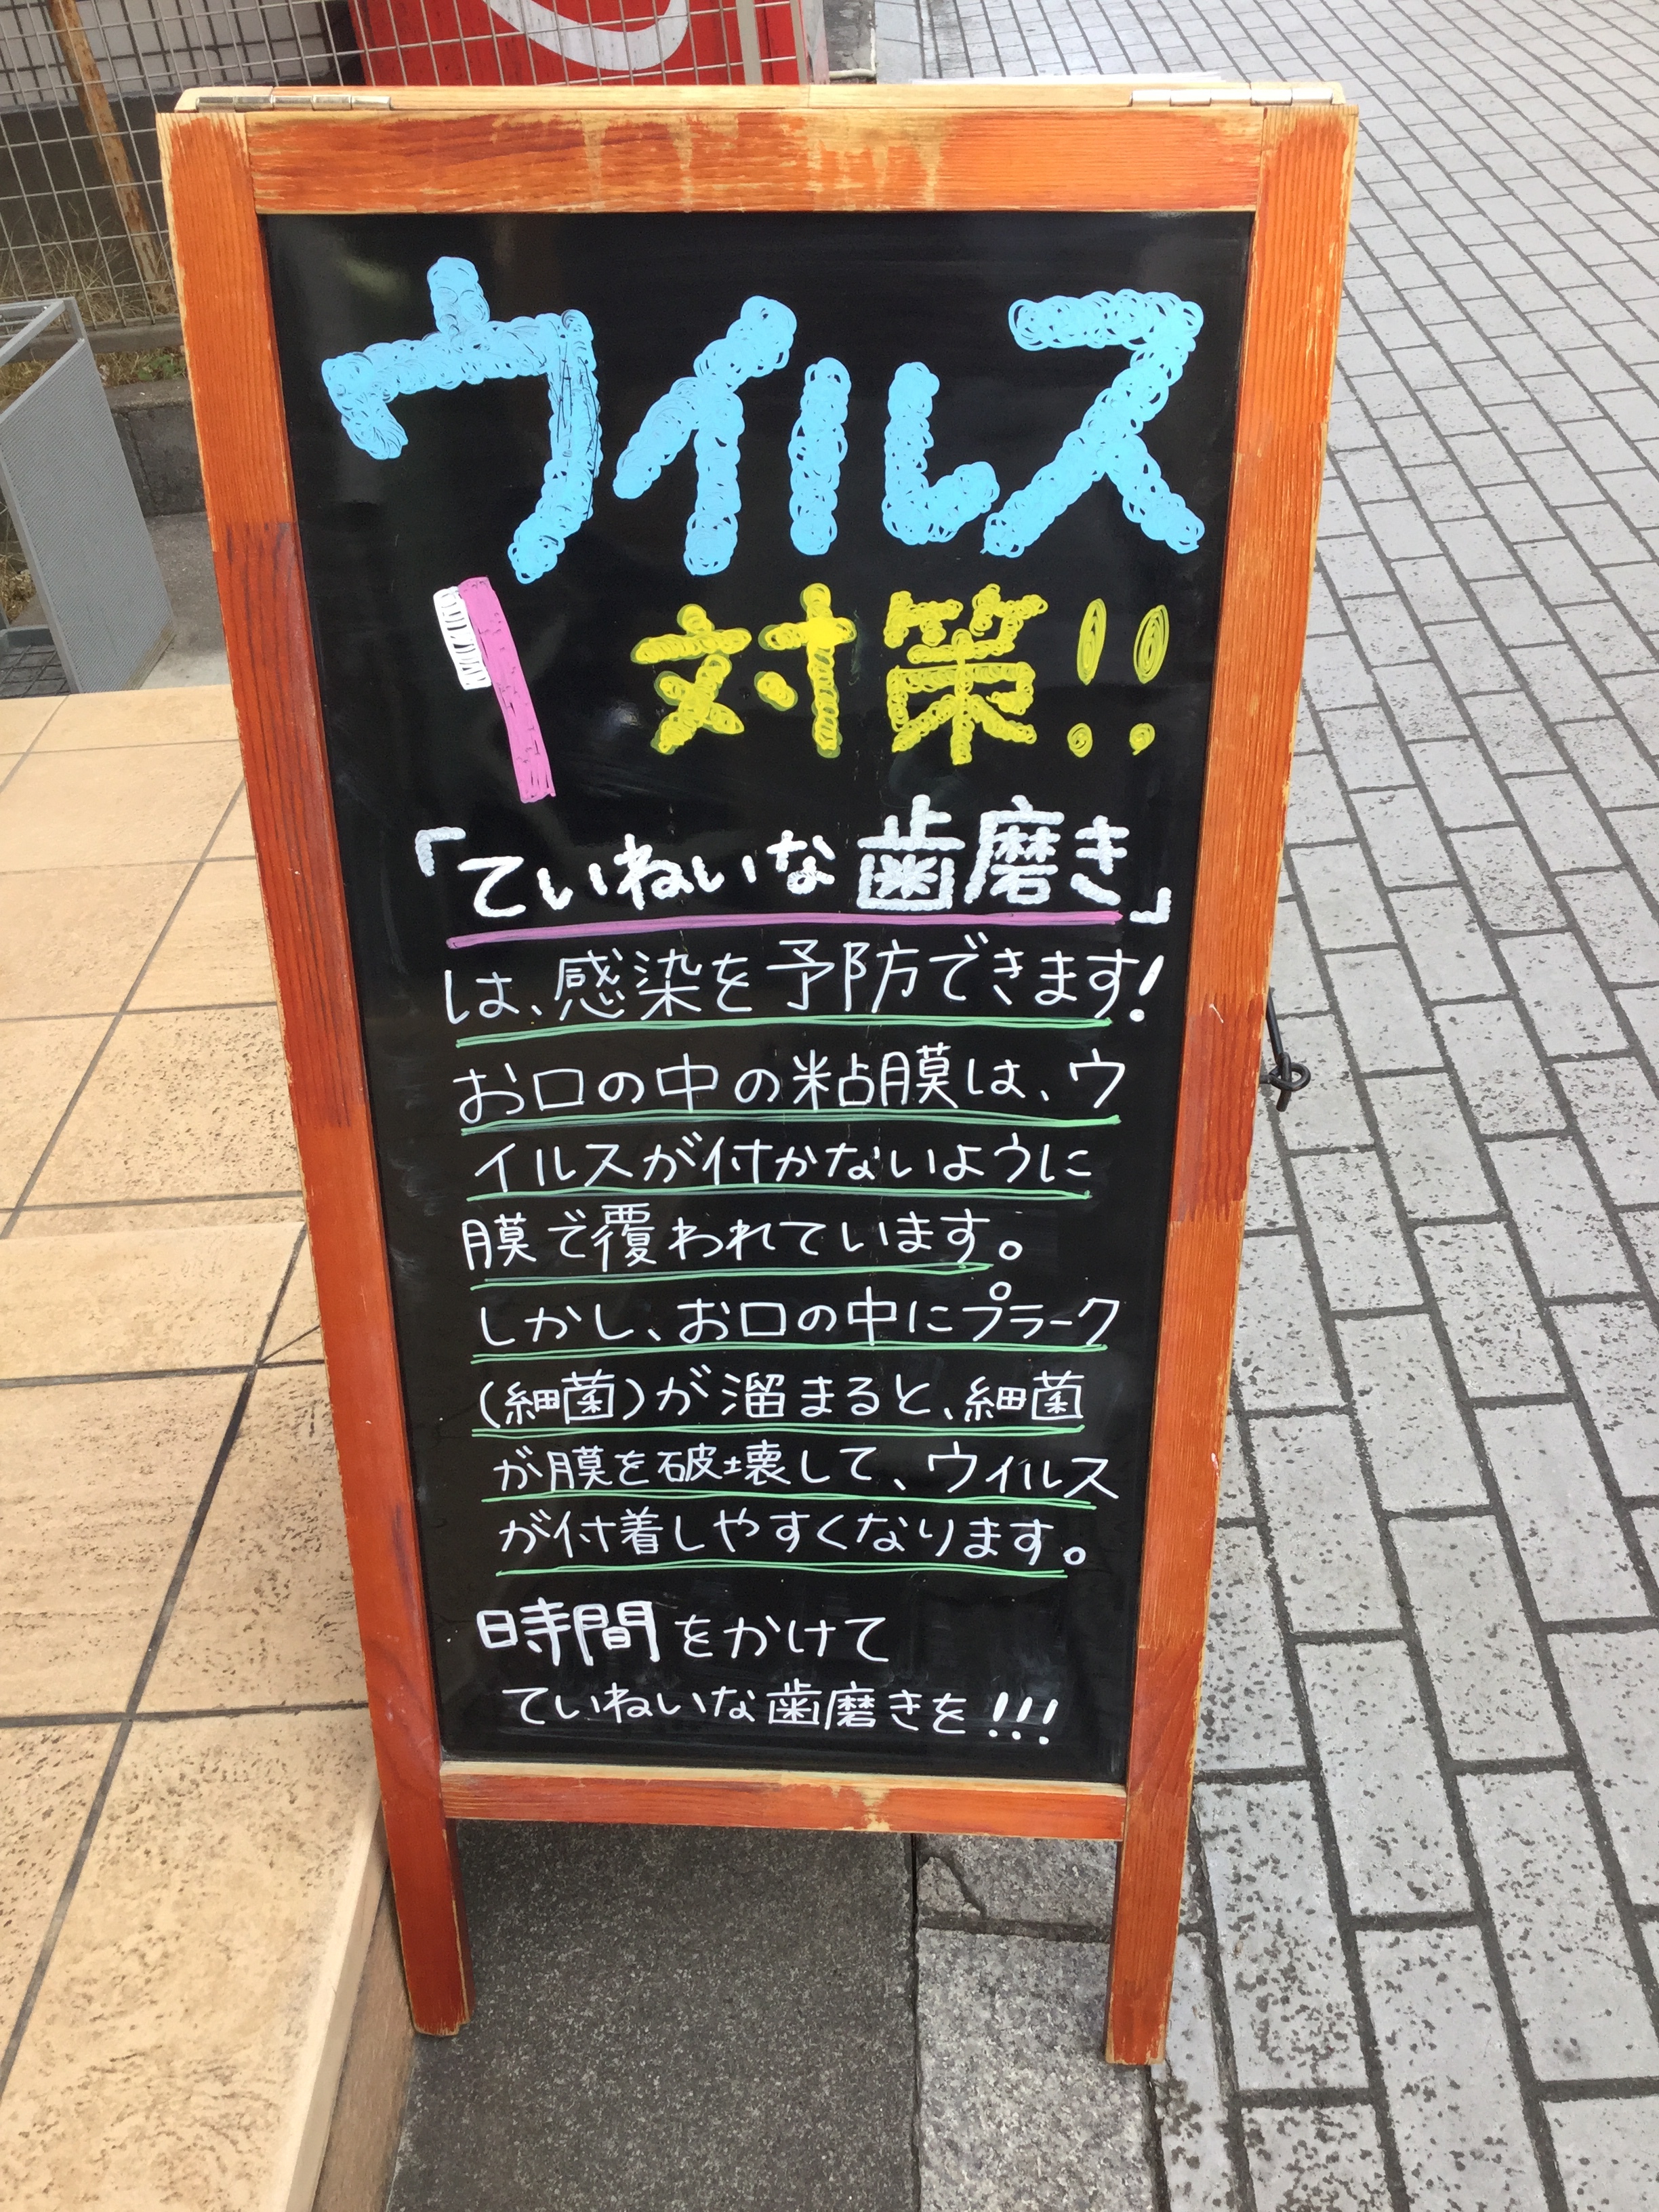 ウイルス
対策!!
「ていねいな歯磨き」
は、感染を予防できます!
お口の中の粘膜は、ウ
イルスが付かないように
膜で覆われています。
しかし、お口の中にプラーク
(細菌)が溜まると、細菌
が膜を破壊して、ウイルス
が付着しやすくなります。
時間をかけて
ていねいな歯磨きを!!!